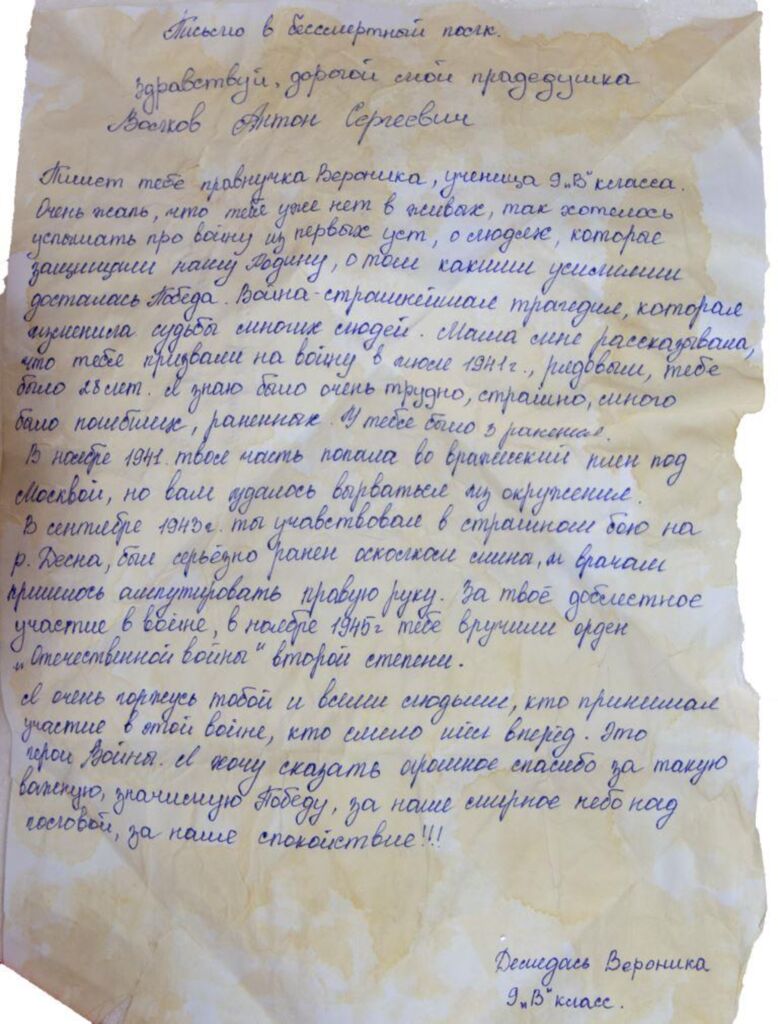 Письмо в бессмертный полк.
Здравствуй, дорогой мой прадедушка
Волков Антон Сергеевич
Пишет тебе правнучка Вероника, ученица 9 „В" класса.
Очень жаль, что тебя уже нет в живых, так хотелось
услышать про войну из первых уст, о людях, которые
защищали нашу Родину, о том какими усилиями
досталась Победа. Война - страшнейшая трагедия, которая
изменила судьбы многих людей. Мама мне рассказывала,
что тебя призвали на войну в июле 1941 г., рядовым, тебе
было 28 лет. Я знаю было очень трудно, страшно, много
было погибших, раненных. У тебя было 3 ранения.
В ноябре 1941. твоя часть попала во вражеский плен под
Москвой, но вам удалось вырваться из окружения.
В сентябре 1943 г. ты учавствовал в страшном бою на
р. Десна, был серьёзно ранен осколком мина, и врачам
пришлось ампутировать правую руку. За твоё доблестное
участие в войне, в ноябре 1945 г тебе вручили орден
„Отечественной войны" второй степени.
Я очень горжусь тобой и всеми людьми, кто принимал
участие в этой войне, кто смело шёл вперёд. Это
герои Войны. Я хочу сказать огромное спасибо за такую
важную, значимую Победу, за наше мирное небо над
головой, за наше спокойствие!!!
Вероника
9 „В" класс.